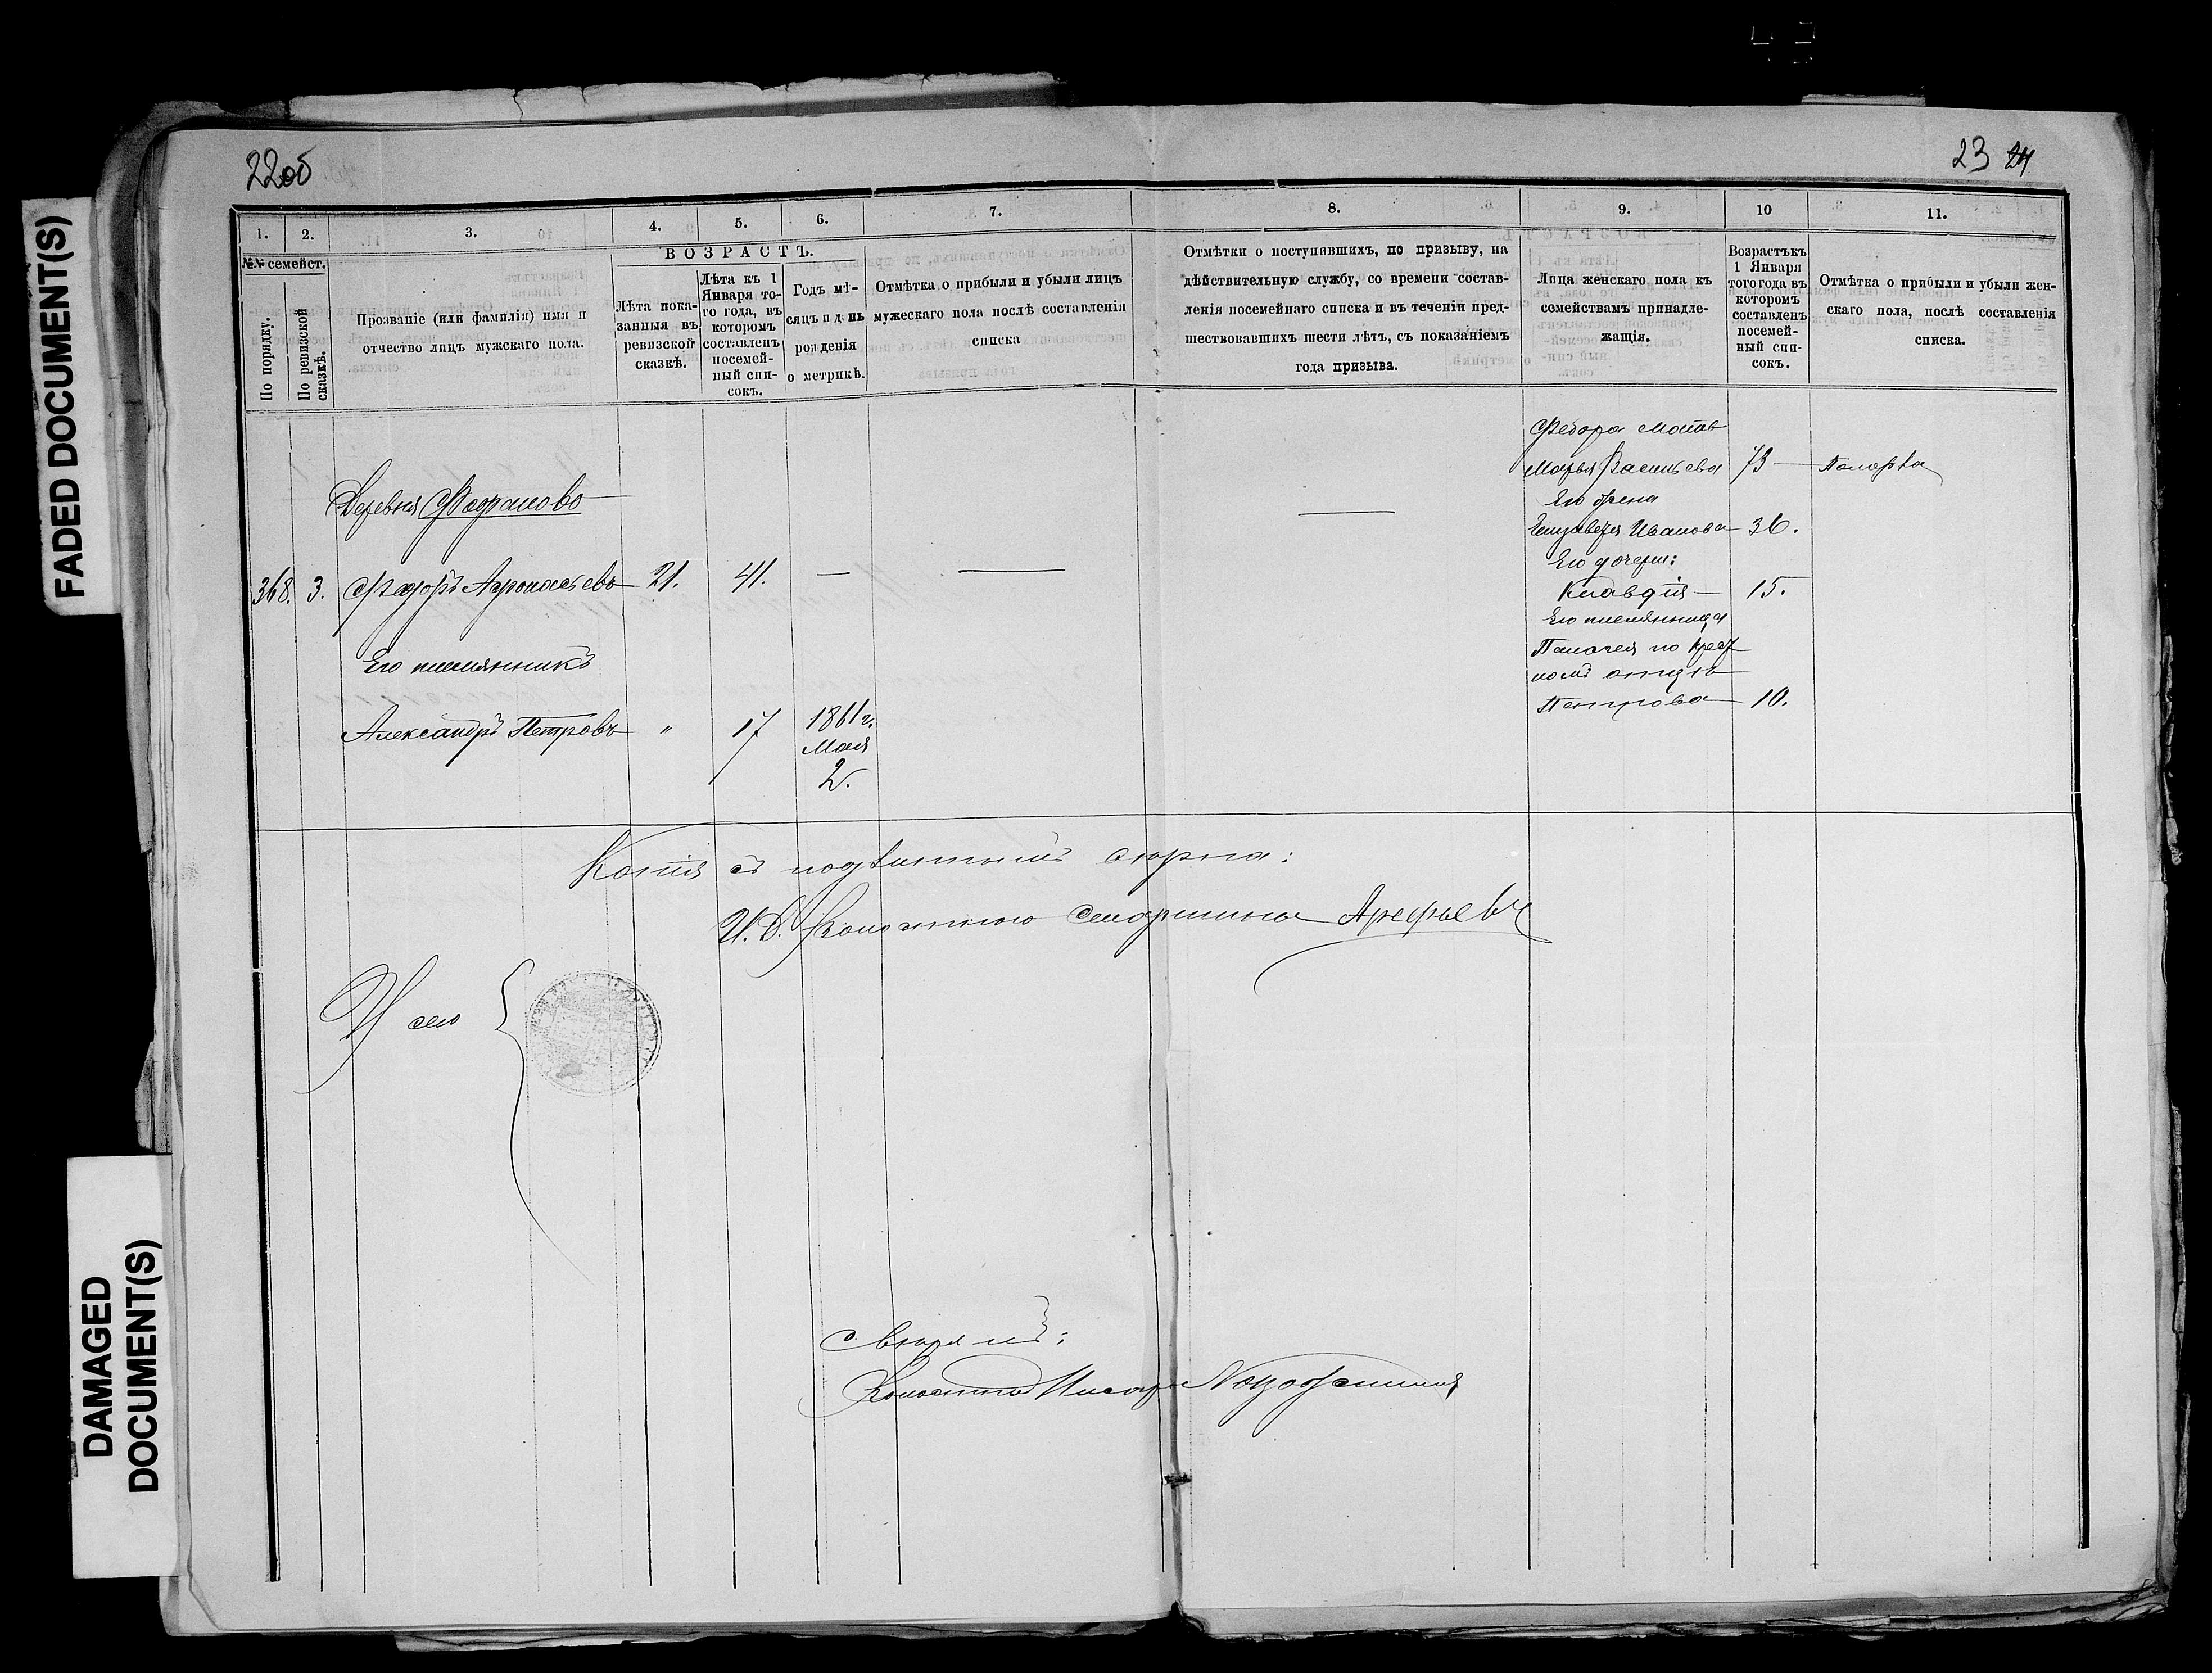 FADED DOCUMENT(S)
DAMAGED
DOCUMENT(S)
22об
23 24
1.
2.
3.
4.
5.
6.
7.
8.
9.
10
11.
№№ семейст.
По порядку.
По ревизской
сказкѣ.
Прозваніе (или фамилія) имя и
отчество лицъ мужскаго пола.
ВОЗРАСТЪ.
Лѣта пока-
занныя въ
ревизской
сказкѣ.
Лѣта къ 1
Января то-
го года, въ
которомъ
составленъ
посемей-
ный спи-
сокъ.
Годъ мѣ-
сяцъ и день
рожденія
о метрикѣ.
Отмѣтка о прибыли и убыли лицъ
мужескаго пола послѣ составленія
списка
Отмѣтки о поступившихъ, по призыву, на
дѣйствительную службу, со времени состав-
ленія посемейнаго списка и въ теченіи пред-
шествовавшихъ шести лѣтъ, съ показаніемъ
года призыва.
Лица женскаго пола къ
семействамъ принадле-
жащія.
Возрастъ къ
1 Января
того года въ
которомъ
составленъ
посемей-
ный спи-
сокъ.
Отмѣтка о прибыли и убыли жен-
скаго пола, послѣ составленія
списка.
Деревня
368. 3. Федоръ Афонасьевъ 21. 41. — —
Его племянникъ
Александръ Петровъ " 17 1861 г.
Мая
2.
Федора мать
Марья Васильева 73 —
Его жена
Елизавета Иванова 36.
Его дочери:
Клавдія — 15.
Его племянница
Пелагея по крест
номъ отцѣ
Петрова 10.
Копія съ подлиннымъ вѣрна:
И. Д. Волостнаго Старшины Арефьевъ
Число
Свѣрялъ:
Волостной Писарь